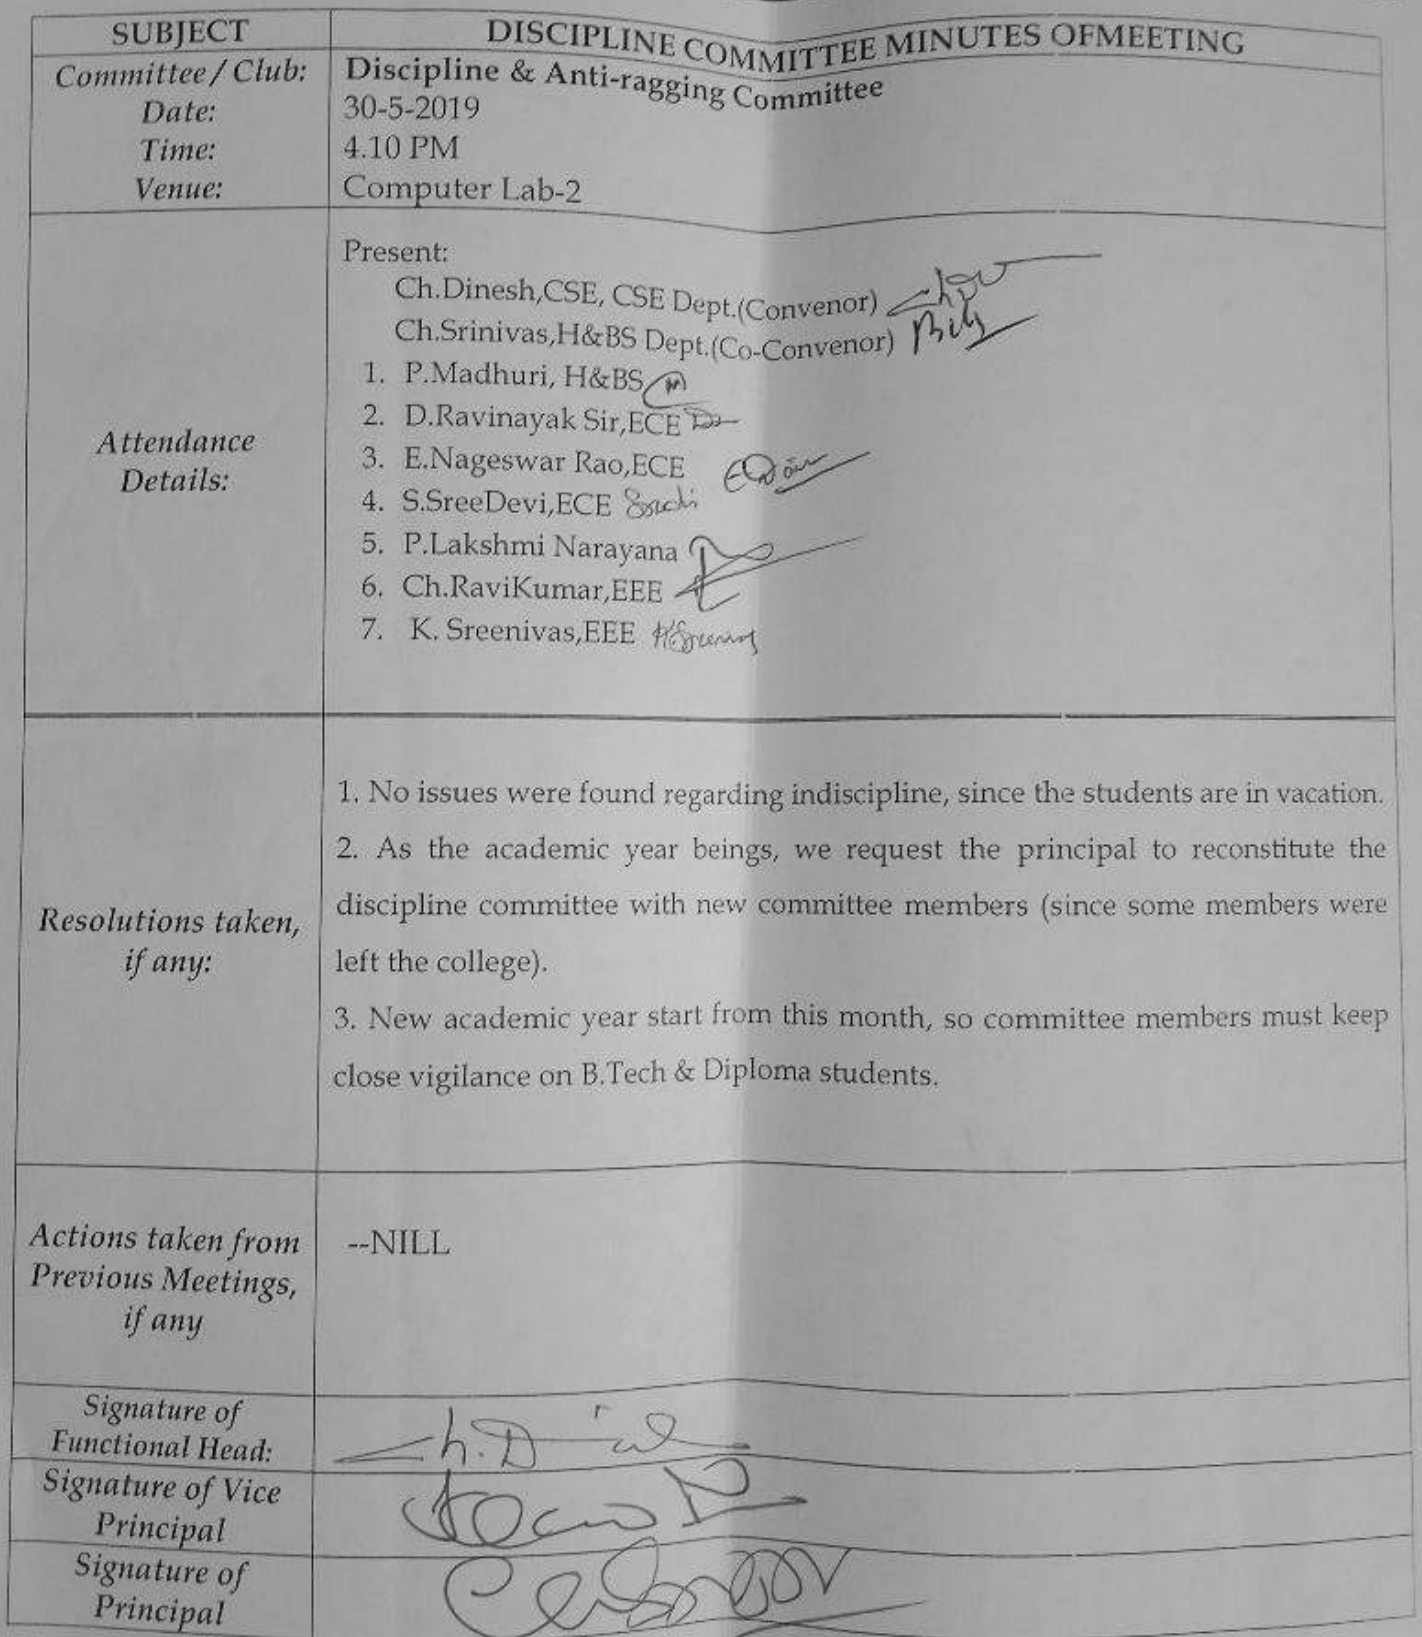 SUBJECT
DISCIPLINE COMMITTEE MINUTES OFMEETING
Committee / Club:
Discipline & Anti-ragging Committee
Date:
30-5-2019
Time:
4.10 PM
Venue:
Computer Lab-2
Attendance
Details:
Present:
Ch.Dinesh,CSE, CSE Dept.(Convenor)
Ch.Srinivas,H&BS Dept.(Co-Convenor)
1. P.Madhuri, H&BS
2. D.Ravinayak Sir,ECE
3. E.Nageswar Rao,ECE
4. S.SreeDevi,ECE
5. P.Lakshmi Narayana
6. Ch.RaviKumar,EEE
7. K. Sreenivas,EEE
Resolutions taken,
if any:
1. No issues were found regarding indiscipline, since the students are in vacation.
2. As the academic year beings, we request the principal to reconstitute the
discipline committee with new committee members (since some members were
left the college).
3. New academic year start from this month, so committee members must keep
close vigilance on B.Tech & Diploma students.
Actions taken from
Previous Meetings,
if any
--NILL
Signature of
Functional Head:
Signature of Vice
Principal
Signature of
Principal